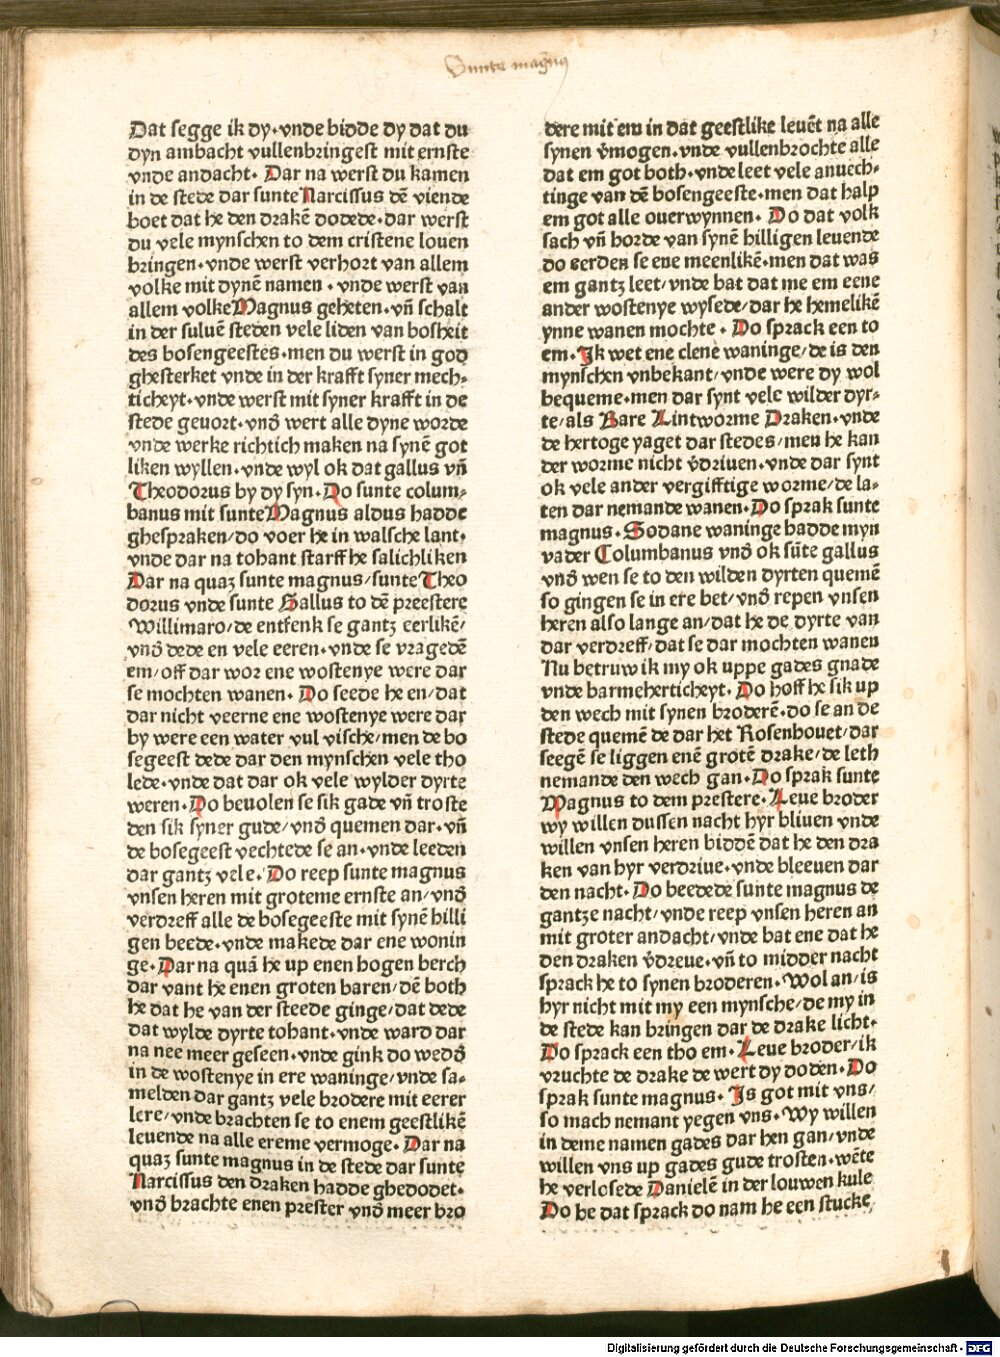 Sunte magnus
Dat segge ik dy·vnde bidde dy dat du
dyn ambacht vullenbringest mit ernste
vnde andacht· Dar na werst du kamen
in de stede dar sunte Narcissus dē viende
boet dat he den drakē dodede·dar werst
du vele mynschen to dem cristene louen
bringen·vnde werst verhort van allem
volke mit dynē namen·vnde werst van
allem volke Magnus geheten·vn̄ schalt
in der suluē steden vele liden van bosheit
des bosengeestes·men du werst in god
ghesterket vnde in der krafft syner mech⸗
ticheyt·vnde werst mit syner krafft in de
stede geuort·vnd̄ wert alle dyne worde
vnde werke richtich maken na synē got
liken wyllen·vnde wyl ok dat gallus vn̄
Theodorus by dy syn·Do sunte colum⸗
banus mit sunte Magnus aldus hadde
ghespraken/do voer he in walsche lant·
vnde dar na tohant starff he salichliken
Dar na quaz sunte magnus/sunte Theo
dorus vnde sunte Gallus to dē preestere
Willimaro/de entfenk se gantz eerlikē/
vnd̄ dede en vele eeren·vnde se vragedē
em/off dar wor ene wostenye were dar
se mochten wanen· Do seede he en/dat
dar nicht veerne ene wostenye were dar
by were een water vul vische/men de bo
segeest dede dar den mynschen vele tho
lede·vnde dat dar ok vele wylder dyrte
weren·Do beuolen se sik gade vn̄ troste
den sik syner gude/vnd̄ quemen dar·vn̄
de bosegeest vechtede se an·vnde leeden
dar gantz vele·Do reep sunte magnus
vnsen heren mit groteme ernste an/vnd̄
verdreff alle de bosegeeste mit synē hilli
gen beede·vnde makede dar ene wonin
ge·Dar na quā he up enen hogen berch
dar vant he enen groten baren/dē both
he dat he van der steede ginge/dat dede
dat wylde dyrte tohant·vnde ward dar
na nee meer geseen·vnde gink do wedd̄
in de wostenye in ere waninge/vnde sa⸗
melden dar gantz vele brodere mit eerer
lere/vnde brachten se to enem geestlikē
leuende na alle ereme vermoge·Dar na
quaz sunte magnus in de stede dar sunte
Narcissus den draken hadde ghedodet·
vnd̄ brachte enen prester vnd̄ meer bro
dere mit em in dat geestlike leuēt na alle
synen v̄mogen·vnde vullenbrochte alle
dat em got both·vnde leet vele anuech⸗
tinge van dē bosengeeste·men dat halp
em got alle ouerwynnen· Do dat volk
sach vn̄ horde van synē hilligen leuende
do eerden se ene meenlikē·men dat was
em gantz leet/vnde bat dat me em eene
ander wostenye wysede/dar he hemelikē
ynne wanen mochte· Do sprack een to
em·Ik wet ene clene waninge/de is den
mynschen vnbekant/vnde were dy wol
bequeme·men dar synt vele wilder dyr⸗
te/als Bare Lintworme Draken·vnde
de hertoge yaget dar stedes/men he kan
der worme nicht v̄driuen·vnde dar synt
ok vele ander vergifftige worme/de la⸗
ten dar nemande wanen·Do sprak sunte
magnus·Sodane waninge hadde myn
vader Columbanus vnd̄ ok sūte gallus
vnd̄ wen se to den wilden dyrten quemē
so gingen se in ere bet/vnd̄ repen vnsen
heren also lange an/dat he de dyrte van
dar verdreff/dat se dar mochten wanen
Nu betruw ik my ok uppe gades gnade
vnde barmeherticheyt·Do hoff he sik up
den wech mit synen broderē·do se an de
stede quemē de dar het Rosenhouet/dar
seegē se liggen enē grotē drake/de leth
nemande den wech gan·Do sprak sunte
Magnus to dem prestere·Leue broder
wy willen dussen nacht hyr bliuen vnde
willen vnsen heren biddē dat he den dra
ken van hyr verdriue·vnde bleeuen dar
den nacht·Do beedede sunte magnus de
gantze nacht/vnde reep vnsen heren an
mit groter andacht/vnde bat ene dat he
den draken v̄dreue·vn̄ to midder nacht
sprack he to synen broderen·Wol an/is
hyr nicht mit my een mynsche/de my in
de stede kan bringen dar de drake licht·
Do sprack een tho em·Leue broder/ik
vruchte de drake de wert dy doden·Do
sprak sunte magnus· Is got mit vns/
so mach nemant yegen vns·Wy willen
in deme namen gades dar hen gan/vnde
willen vns up gades gude trosten·wēte
he verlosede Danielē in der louwen kule
Do he dat sprack do nam he een stucke
Digitalisierung gefördert durch die Deutsche Forschungsgemeinschaft - DFG